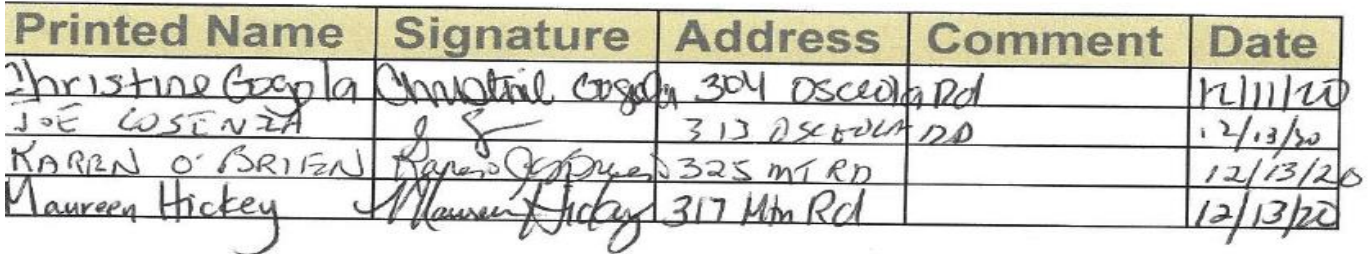 Printed Name Signature Address Comment Date
Christine Gogola Christine Gogola 304 Osceola Rd 12/11/20
JOE COSENZA 313 OSCEOLA RD 12/13/20
KAREN O'BRIEN Karen O'Brien 325 MT RD 12/13/20
Maureen Hickey Maureen Hickey 317 Mtn Rd 12/13/20